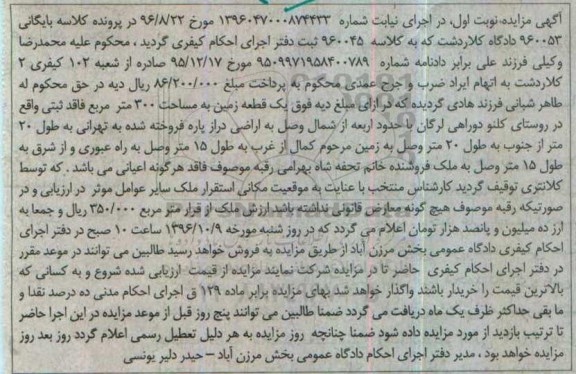 آگهی مزایده نوبت اول، در اجرای نیابت شماره ۱۳۹۶۰۴۷۰۰۰۸۷۴۴۳۳ مورخ ۹۶/۸/۲۲ در پرونده کلاسه بایگانی
۹۶۰۰۵۳ دادگاه کلاردشت که به کلاسه ۹۶۰۰۴۵ ثبت دفتر اجرای احکام کیفری گردید ، محکوم علیه محمدرضا
وکیلی فرزند علی برابر دادنامه شماره ۹۵۰۹۹۷۱۹۵۸۴۰۰۷۸۹ مورخ ۹۵/۱۲/۱۷ صادره از شعبه ۱۰۲ کیفری ۲
کلاردشت به اتهام ایراد ضرب و جرح عمدی محکوم به پرداخت مبلغ ۸۶/۲۰۰/۰۰۰ ریال دیه در حق محکوم له
طاهر شبانی فرزند هادی گردیده که در ازای مبلغ دیه فوق یک قطعه زمین به مساحت ۳۰۰ متر مربع فاقد ثبتی واقع
در روستای کلنو دوراهی لرگان با حدود اربعه از شمال وصل به اراضی دراز پاره فروخته شده به تهرانی به طول ۲۰
متر از جنوب به طول ۲۰ متر وصل به زمین مرحوم کمال از غرب به طول ۱۵ متر وصل به راه عبوری و از شرق به
طول ۱۵ متر وصل به ملک فروشنده خانم تحفه شاه بهرامی رقبه موصوف فاقد هرگونه اعیانی می باشد . که توسط
کلانتری توقیف گردید کارشناس منتخب با عنایت به موقعیت مکانی استقرار ملک سایر عوامل موثر در ارزیابی و در
صورتیکه رقبه موصوف هیچ گونه معارض قانونی نداشته باشد ارزش ملک از قرار متر مربع ۳۵۰/۰۰۰ ریال و جمعا به
ارز ده میلیون و پانصد هزار تومان اعلام می گردد که در روز شنبه مورخه ۱۳۹۶/۱۰/۹ ساعت ۱۰ صبح در دفتر اجرای
احکام کیفری دادگاه عمومی بخش مرزن آباد از طریق مزایده به فروش خواهد رسید طالبین می توانند در موعد مقرر
در دفتر اجرای احکام کیفری حاضر تا در مزایده شرکت نمایند مزایده از قیمت ارزیابی شده شروع و به کسانی که
بالاترین قیمت را خریدار باشند واگذار خواهد شد بهای مزایده برابر ماده ۱۲۹ ق اجرای احکام مدنی ده درصد نقدا و
ما بقی حداکثر ظرف یک ماه دریافت می گردد ضمنا طالبین می توانند پنج روز قبل از موعد مزایده در این اجرا حاضر
تا ترتیب بازدید از مورد مزایده داده شود ضمنا چنانچه روز مزایده به هر دلیل تعطیل رسمی اعلام گردد روز بعد روز
مزایده خواهد بود ، مدیر دفتر اجرای احکام دادگاه عمومی بخش مرزن آباد – حیدر دلیر یونسی